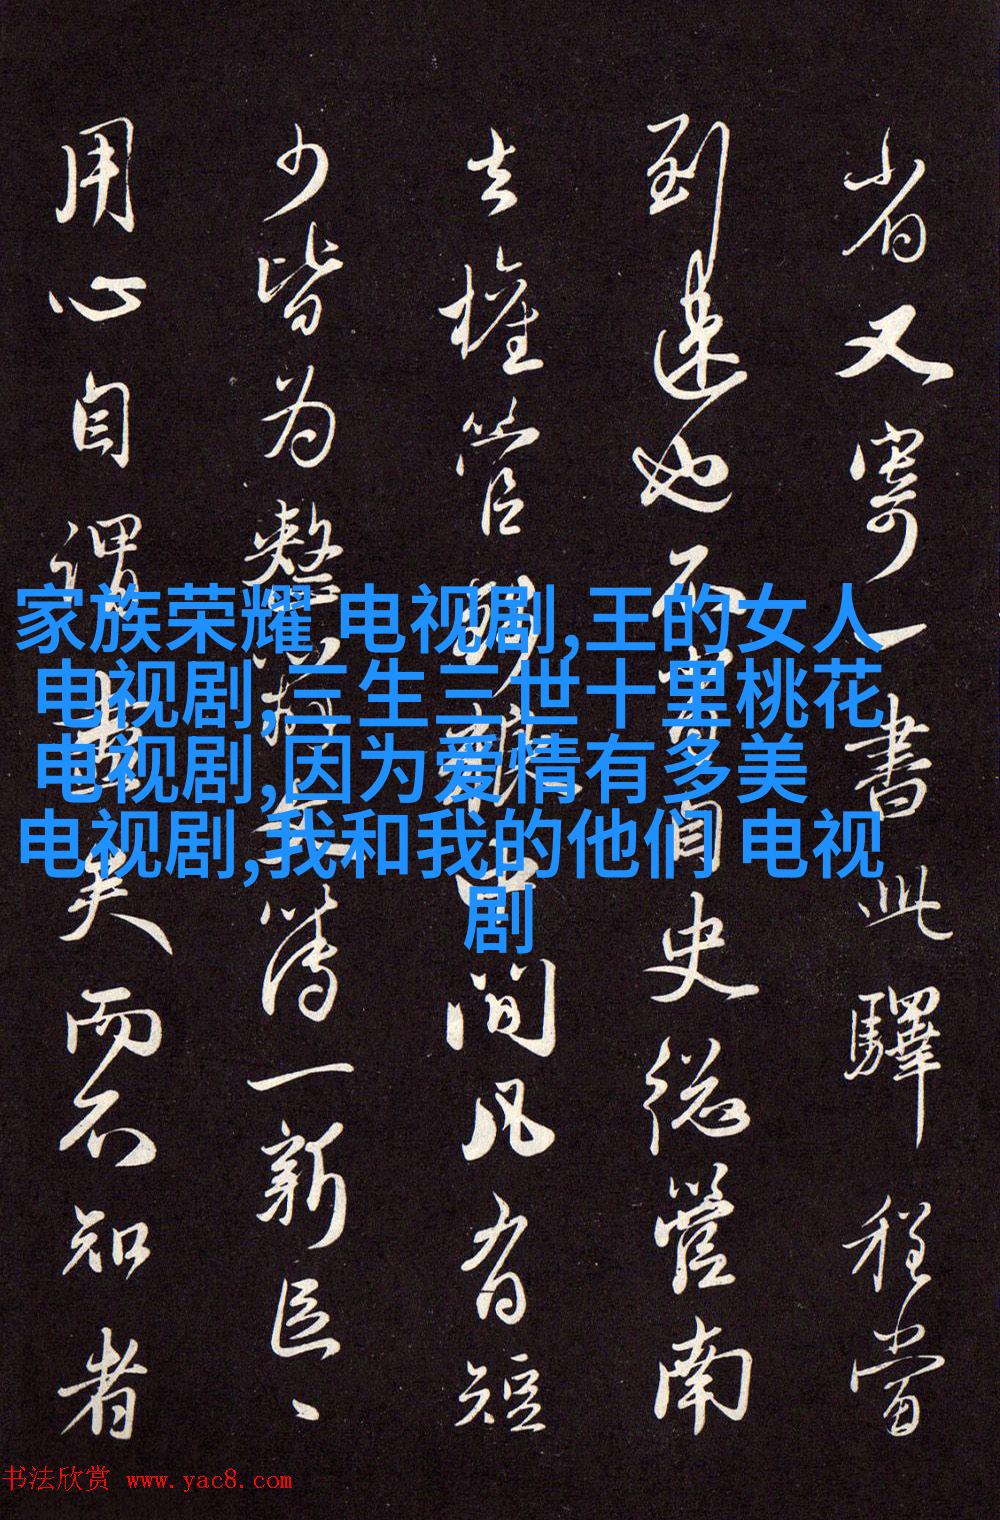 省又寄一書此驛程當
到速也不
自史從營南
去權管
間凡有短
少皆为整
簿一新臣、
用心自謂
矣而不知者
家族荣耀 电视剧,王的女人
电视剧,三生三世十里桃花
电视剧,因为爱情有多美
电视剧,我和我的他们 电视
剧
书法欣赏 www.yac8.com